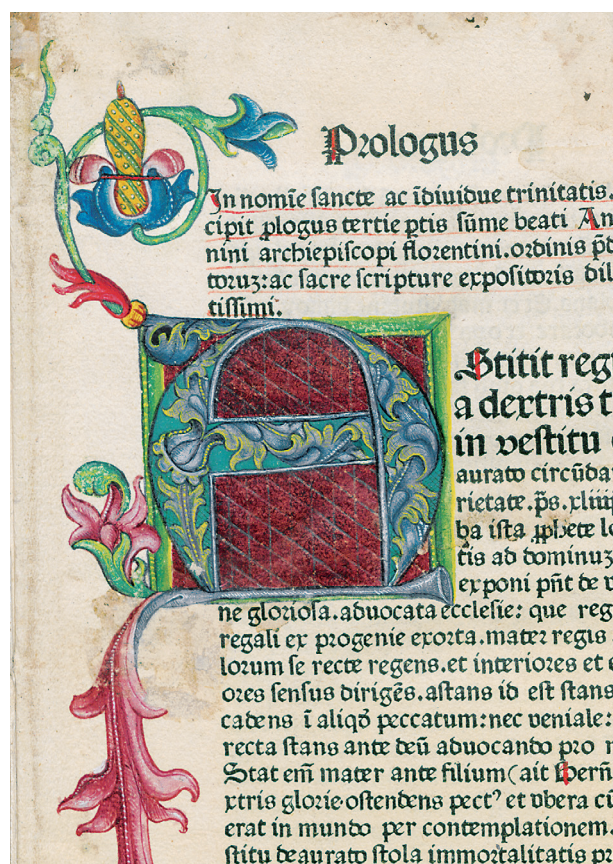 Prologus
In nomīe sancte ac īdiuidue trinitatis.
cipit ꝓlogus tertie ꝑtis sūme beati An
nini archiepiscopi florentini.ordinis p̄d
toruꝫ:ac sacre scripture expositoris dil
tissimi.
A
Stitit reg
a dextris t
in vestitu
aurato circūda
rietate.p̄s.xliiij
ba ista ꝓphete lo
tis ad dominuꝫ
exponi pn̄t de v
ne gloriosa.aduocata ecclesie: que reg
regali ex progenie exorta.mater regis
lorum se recte regens.et interiores et e
ores sensus dirigēs.astans id est stans
cadens ī aliqȯ peccatum:nec veniale:
recta stans ante deū aduocando pro n
Stat em̄ mater ante filium(ait Bern̄
xtris glorie.ostendens pectꝰ et vbera cū
erat in mundo per contemplationem.
stitu deaurato stola immortalitatis pr